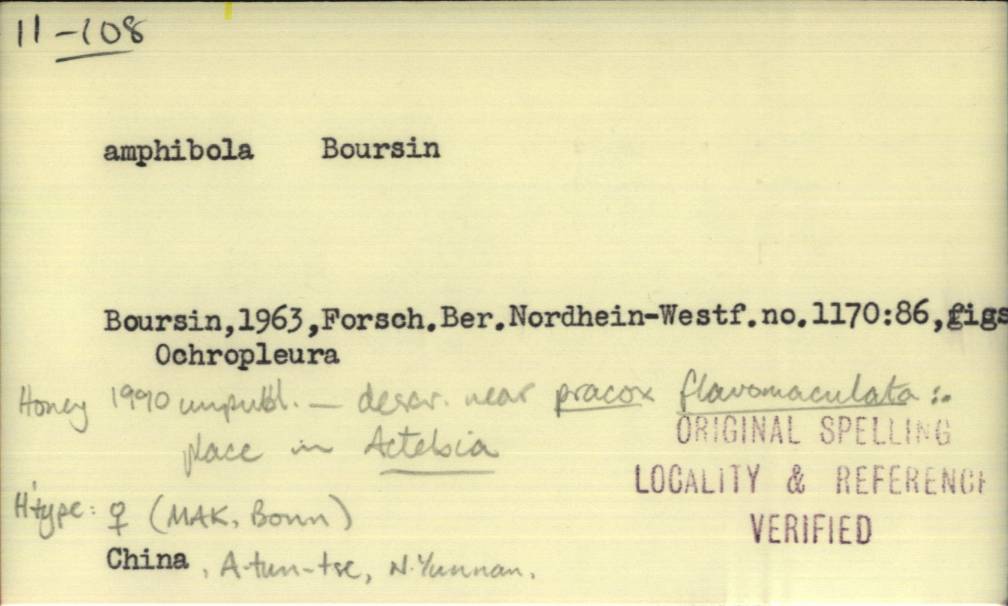 11-108
amphibola Boursin
Boursin,1963,Forsch.Ber.Nordhein-Westf.no.1170:86,figs
Ochropleura
Honey 1990 unpubl. — descr. near pracox flavomaculata ∴
place in Actebia
ORIGINAL SPELLING
LOCALITY & REFERENCE
VERIFIED
H'type: ♀ (MAK, Bonn)
China, A-tun-tse, N. Yunnan.